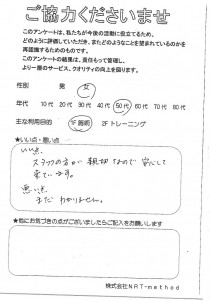 ご協力くださいませ
このアンケートは、私たちが今後の活動に役立てるため、
どのように評価していただき、またどのようなことを望まれているのかを
再認識するためのものです。
このアンケートの結果は、責任もって管理し、
より一層のサービス、クオリティの向上を図ります。
性別 男 女
年代 10代 20代 30代 40代 50代 60代 70代 80代
主な利用目的 1F施術 2Fトレーニング
★いい点・悪い点
いい点
スタッフの方が親切なので安心して
来ています。
悪い点
まだわかりません。
★他にお気づきの点がございましたらご記入をお願いします
株式会社NRT-method